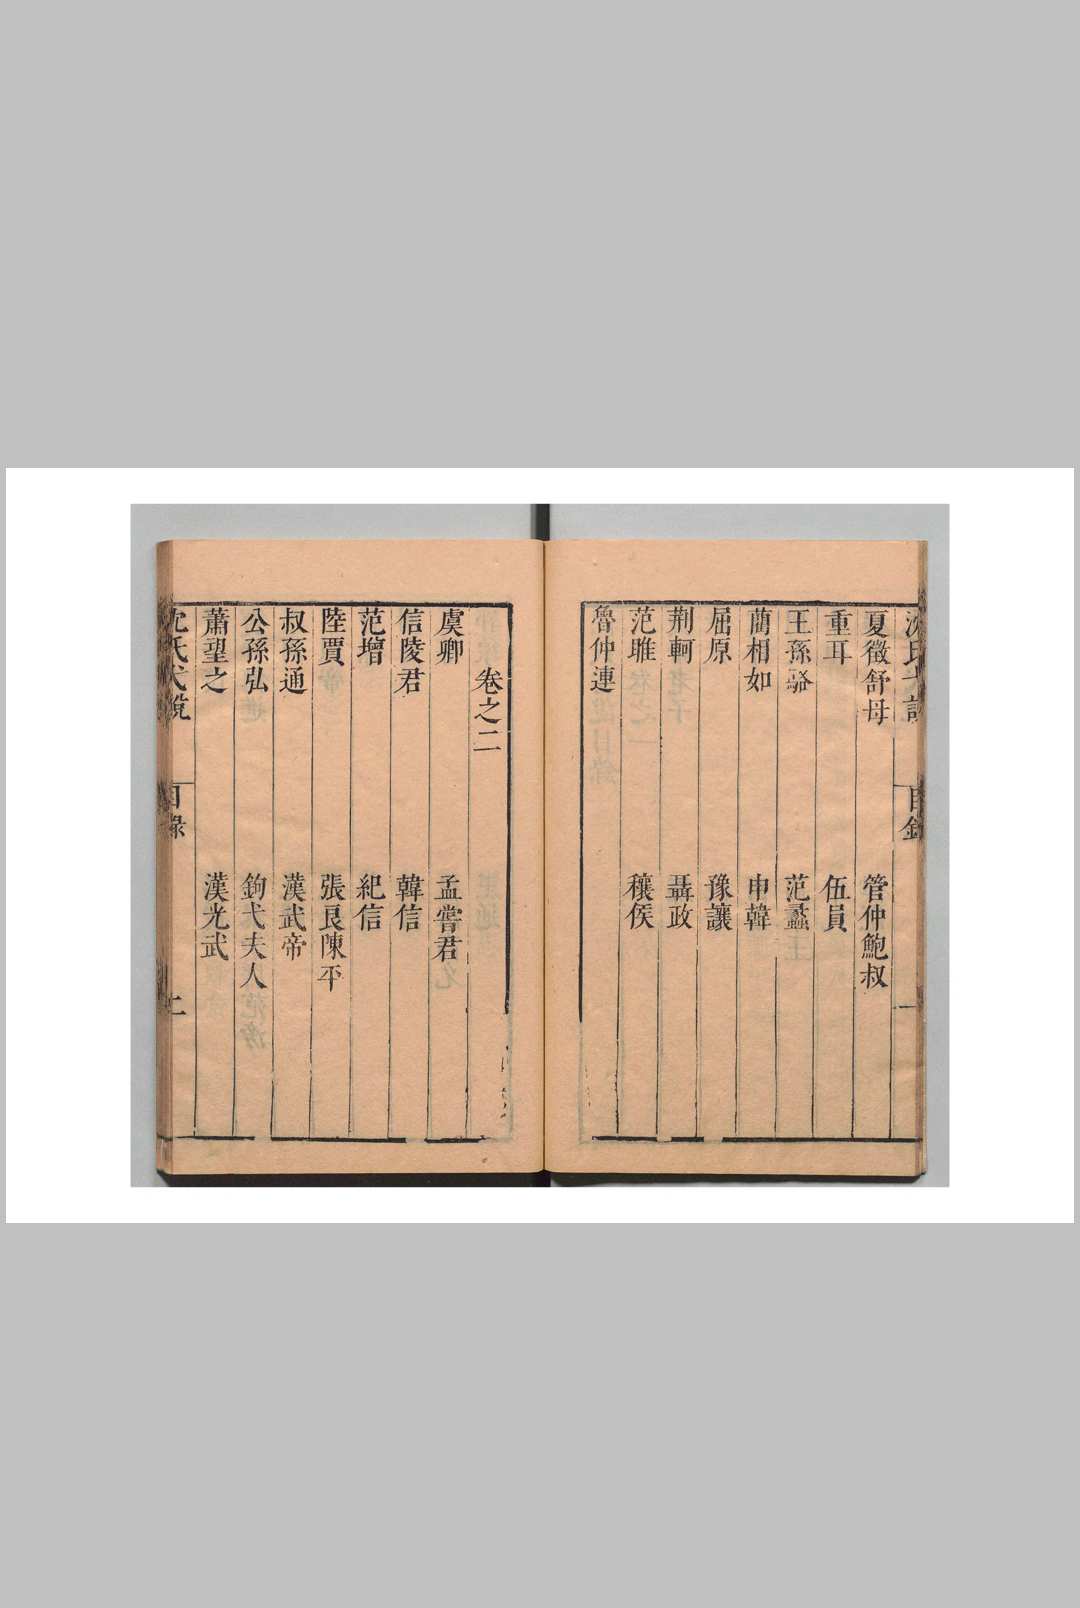 夏徵舒母　管仲鮑叔
重耳　伍員
王孫駱　范蠡
藺相如　申韓
屈原　豫讓
荆軻　聶政
范雎　穰侯
魯仲連
卷之二
虞卿　孟嘗君
信陵君　韓信
范增　紀信
陸賈　張良陳平
叔孫通　漢武帝
公孫弘　鉤弋夫人
蕭望之　漢光武
沈氏弋說　目錄　二